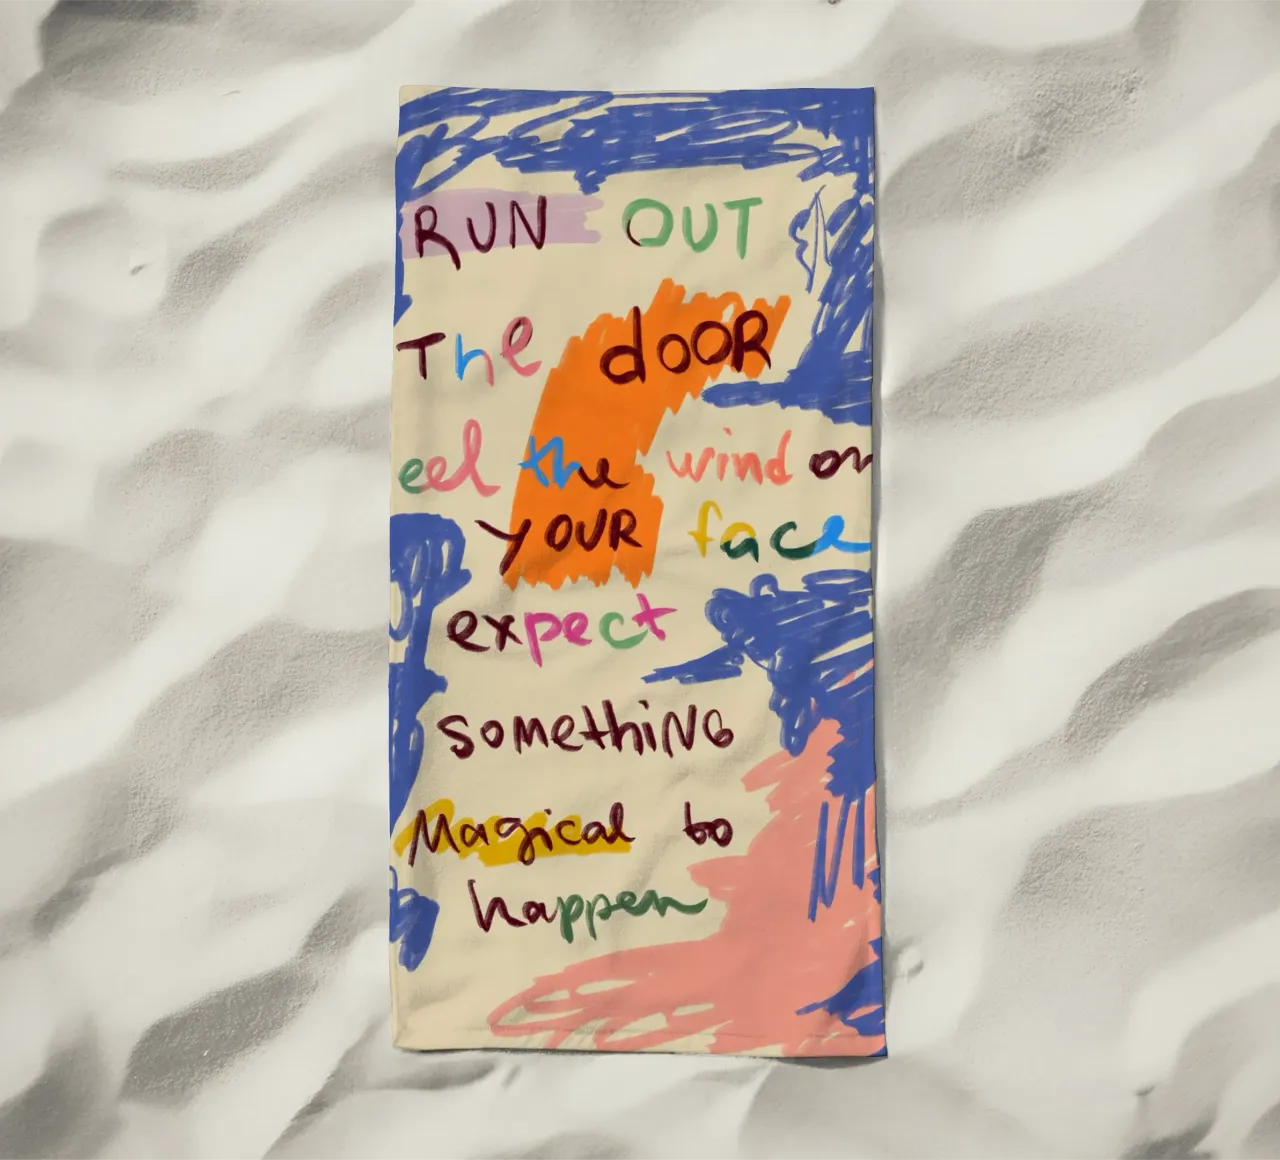 RUN OUT
The dOOR
eel the wind on
YOUR face
expect
sOmethiNG
Magical to
happen